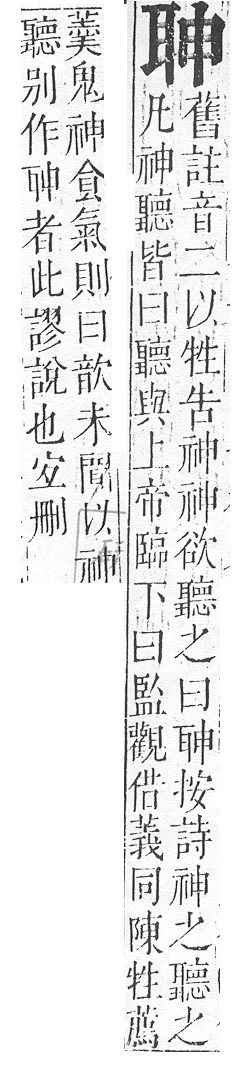 䎶
舊註音二以牲告神神欲聽之曰䎶按詩神之聽之
凡神聽皆曰聽與上帝臨下曰監觀借義同陳牲薦
羹鬼神食氣則曰歆未聞以神
聽別作䎶者此謬說也宜刪